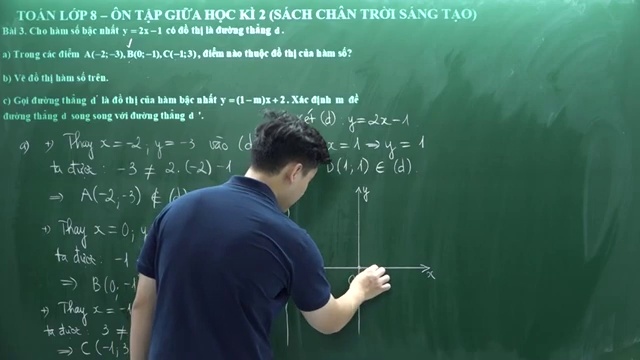 TOÁN LỚP 8 – ÔN TẬP GIỮA HỌC KÌ 2 (SÁCH CHÂN TRỜI SÁNG TẠO)
Bài 3. Cho hàm số bậc nhất y = 2x − 1 có đồ thị là đường thẳng d.
a) Trong các điểm A(−2; −3), B(0; −1), C(−1; 3), điểm nào thuộc đồ thị của hàm số?
b) Vẽ đồ thị hàm số trên.
c) Gọi đường thẳng d' là đồ thị của hàm bậc nhất y = (1 − m)x + 2. Xác định m để
đường thẳng d song song với đường thẳng d'.
a) +) Thay x = -2, y = -3 vào (d
ta được: -3 ≠ 2.(-2) -1
⇒ A(-2,-3) ∉ (d)
+) Thay x = 0, y
ta được: -1
⇒ B(0,-1
+) Thay x = -1
ta được: 3 ≠
⇒ C(-1,3
ét (d). y = 2x - 1
x = 1 ⇒ y = 1
D(1,1) ∈ (d).
y
x